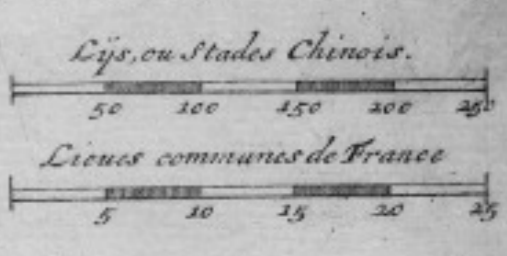 Lÿs, ou Stades Chinois.
50 100 150 200 250
Lieues communes de France
5 10 15 20 25